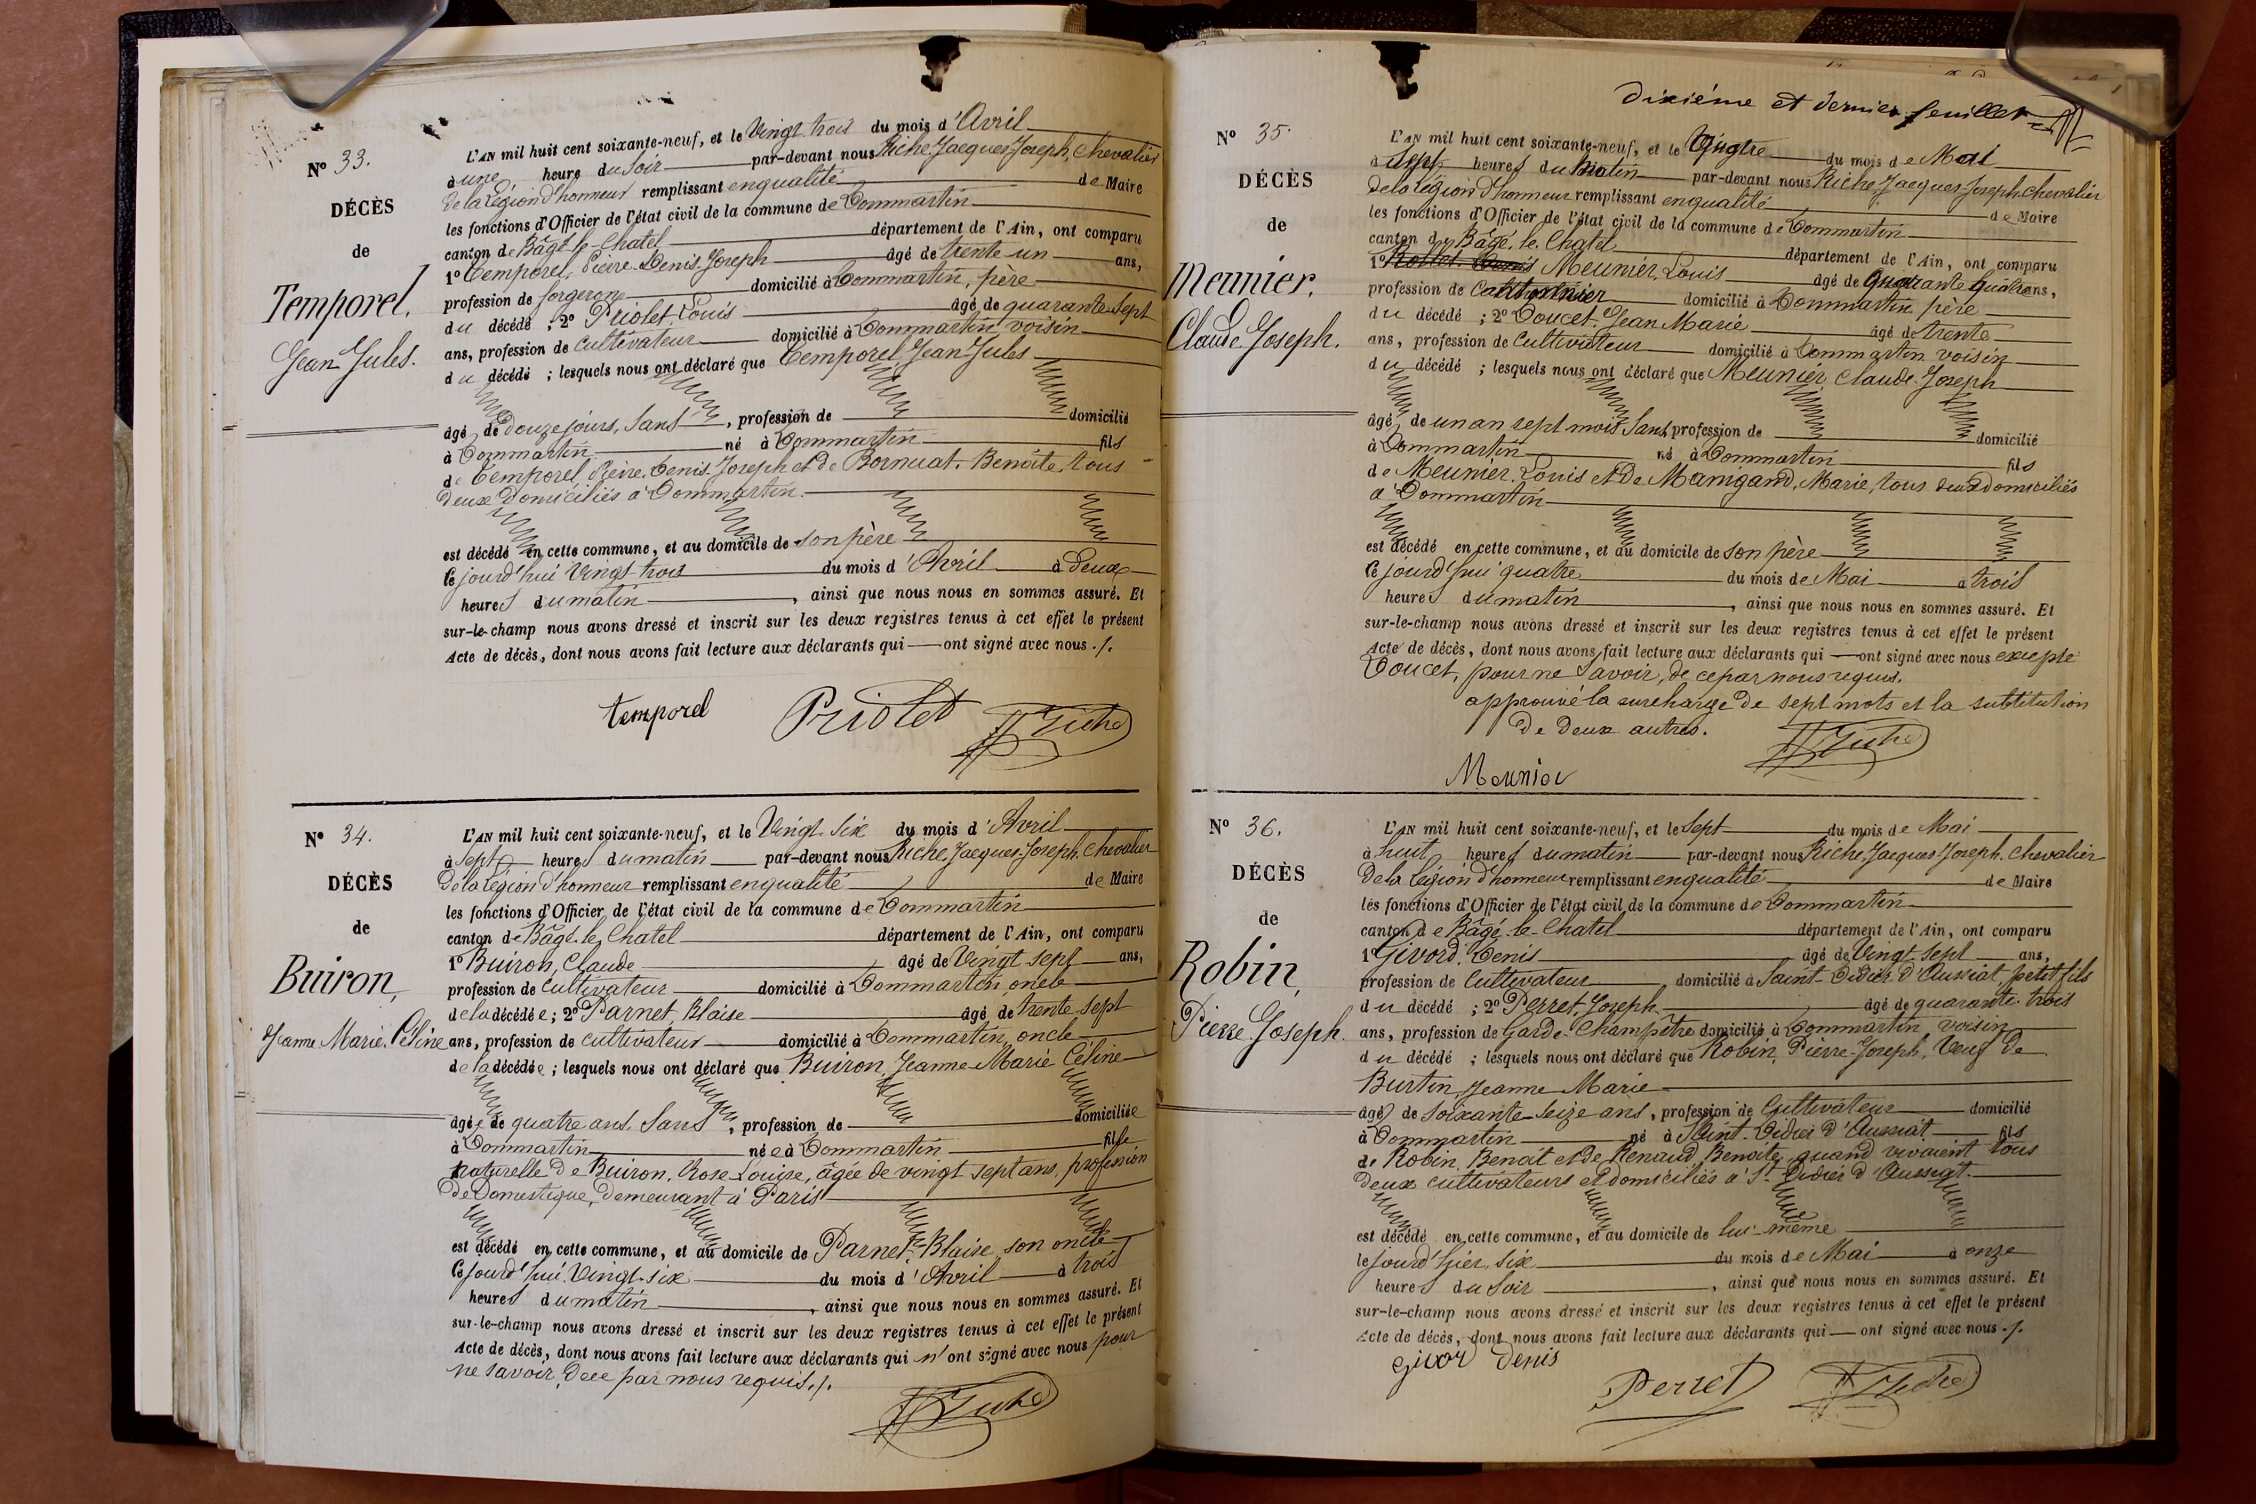 N° 33.
DÉCÈS
de
Temporel,
Jean Jules.
L'AN mil huit cent soixante-neuf, et le Vingt trois du mois d'Avril
à une heure du Soir par-devant nous Riche Jacques Joseph, Chevalier
de la Légion d'honneur remplissant en qualité de Maire
les fonctions d'Officier de l'état civil de la commune de Dommartin
canton de Bâgé-le-Chatel département de l'Ain, ont comparu
1° Temporel, Pierre-Denis-Joseph âgé de trente un ans,
profession de forgeron domicilié à Dommartin, père
du décédé ; 2° Priolet, Louis âgé de quarante sept
ans, profession de cultivateur domicilié à Dommartin voisin
du décédé ; lesquels nous ont déclaré que Temporel Jean Jules
âgé de Douze jours, Sans , profession de domicilié
à Dommartin né à Dommartin fils
de Temporel, Pierre, Denis, Joseph et de Bornuat, Benoite, tous
deux domiciliés à Dommartin.
est décédé en cette commune, et au domicile de son père
Ce jourd'hui Vingt-trois du mois d'Avril à Deux
heures du matin , ainsi que nous nous en sommes assuré. Et
sur-le-champ nous avons dressé et inscrit sur les deux registres tenus à cet effet le présent
Acte de décès, dont nous avons fait lecture aux déclarants qui ont signé avec nous ./.
temporel Priolet JJRiche
N° 34.
DÉCÈS
de
Buiron,
Jeanne Marie Céline
L'AN mil huit cent soixante-neuf, et le Vingt-Six du mois d'Avril
à sept heures du matin par-devant nous Riche, Jacques-Joseph, Chevalier
De la Légion d'honneur remplissant en qualité de Maire
les fonctions d'Officier de l'état civil de la commune de Dommartin
canton de Bâgé-le-Chatel département de l'Ain, ont comparu
1° Buiron, Claude âgé de Vingt sept ans,
profession de cultivateur domicilié à Dommartin, oncle
de la décédée ; 2° Parnet, Blaise âgé de trente sept
ans, profession de cultivateur domicilié à Dommartin, oncle
de la décédée ; lesquels nous ont déclaré que Buiron, Jeanne-Marie Céline
âgée de quatre ans, Sans , profession de domiciliée
à Dommartin née à Dommartin fille
naturelle de Buiron, Rose-Louise, âgée de vingt sept ans, profession
De Domestique, demeurant à Paris
est décédé en cette commune, et au domicile de Parnet, Blaise, son oncle
Ce jourd'hui Vingt-six du mois d'Avril à trois
heures du matin , ainsi que nous nous en sommes assuré. Et
sur-le-champ nous avons dressé et inscrit sur les deux registres tenus à cet effet le présent
Acte de décès, dont nous avons fait lecture aux déclarants qui n'ont signé avec nous pour
ne savoir, de ce par nous requis ./.
JJRiche
Dixième et dernier feuillet
N° 35.
DÉCÈS
de
Meunier,
Claude Joseph.
L'AN mil huit cent soixante-neuf, et le Quatre du mois de Mai
à Sept heures du Matin par-devant nous Riche, Jacques-Joseph, Chevalier
de la Légion d'honneur remplissant en qualité de Maire
les fonctions d'Officier de l'état civil de la commune de Dommartin
canton de Bâgé-le-Chatel département de l'Ain, ont comparu
1° Meunier, Louis âgé de Quarante Quatre ans,
profession de domicilié à Dommartin père
du décédé ; 2° Doucet, Jean Marie âgé de trente
ans, profession de cultivateur domicilié à Dommartin voisin
du décédé ; lesquels nous ont déclaré que Meunier, Claude-Joseph
âgé de un an sept mois, Sans profession de domicilié
à Dommartin né à Dommartin fils
de Meunier, Louis et De Manigand, Marie, tous deux domiciliés
à Dommartin
est décédé en cette commune, et au domicile de son père
Ce jourd'hui quatre du mois de Mai à trois
heures du matin , ainsi que nous nous en sommes assuré. Et
sur-le-champ nous avons dressé et inscrit sur les deux registres tenus à cet effet le présent
Acte de décès, dont nous avons fait lecture aux déclarants qui ont signé avec nous excepté
Doucet, pour ne Savoir, de ce par nous requis.
approuvé la surcharge de sept mots et la subtitution
De deux autres. JJRiche
Meunier
N° 36.
DÉCÈS
de
Robin,
Pierre Joseph.
L'AN mil huit cent soixante-neuf, et le Sept du mois de Mai
à huit heures du matin par-devant nous Riche, Jacques Joseph, Chevalier
De la Légion d'honneur remplissant en qualité de Maire
les fonctions d'Officier de l'état civil de la commune de Dommartin
canton de Bâgé-le-Chatel département de l'Ain, ont comparu
1° Givord, Denis âgé de Vingt sept ans,
profession de cultivateur domicilié à Saint-Didier d'Aussiat, petit fils
du décédé ; 2° Perret, Joseph âgé de quarante-trois
ans, profession de Garde-Champêtre domicilié à Dommartin voisin
du décédé ; lesquels nous ont déclaré que Robin, Pierre-Joseph, Veuf De
Burtin Jeanne Marie
âgé de soixante-seize ans, profession de Cultivateur domicilié
à Dommartin né à Saint-Didier d'Aussiat fils
de Robin, Benoit et de Renaud, Benoite, quand vivaient tous
deux cultivateurs et domiciliés à St Didier d'Aussiat.
est décédé en cette commune, et au domicile de lui-même
le jourd'hier six du mois de Mai à onze
heures du Soir , ainsi que nous nous en sommes assuré. Et
sur-le-champ nous avons dressé et inscrit sur les deux registres tenus à cet effet le présent
Acte de décès, dont nous avons fait lecture aux déclarants qui ont signé avec nous ./.
givor Denis
Perret JJRiche